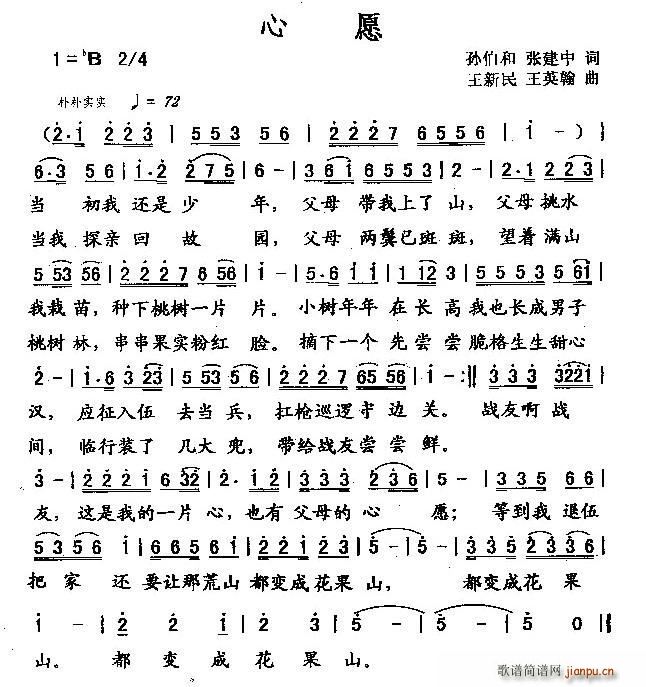 心 愿
1=♭B 2/4
孙伯和 张建中 词
王新民 王英翰 曲
朴朴实实 ♩=72
(2·1 2 2 3 | 5 5 5 3 5 6 | 2 2 2 7 6 5 5 6 | 1 - ) |
6·3 5 6 | 1·2 2 7 5 | 6 - | 3 6 1 1 5 3 | 2 - | 2·1 2 2 3 |
当 初我 还是 少 年， 父母 带我上了 山， 父母 挑水
当我 探亲 回 故 园， 父母 两鬓已斑 斑， 望着 满山
5 53 56 | 2 2 2 7 6 56 | 1 - | 5·6 1 1 | 1 1 2 3 | 5 5 3 5 61 |
我栽 苗， 种下桃树一片 片。 小树年年 在长 高我也长成男子
桃树 林， 串串果实粉红 脸。 摘下一个 先尝 尝脆格生生甜心
2 - | 1·6 3 23 | 5 53 56 | 2 2 2 7 65 56 | 1 - :| 3 3 3 3221 |
汉， 应征入伍 去当 兵， 扛枪巡逻守 边 关。 战友啊 战
间， 临行装了 几大 兜， 带给战友尝 尝 鲜。
3 - | 2 2 2 1 6 32 | 2·1 2 | 3 3 3 2 6 | 5 - | 3 3 5 5 6 |
友， 这是我的一片 心， 也有 父母的 心 愿； 等到我 退伍
5 3 5 6 | 1 2 | 6 6 5 6 1 | 2 2 2 3 3 | 5 - | 5 - | 3 5 3 2 3 3 6 |
把 家 还 要让那荒山 都变成花果 山， 都变成 花 果
1 - | 1 - | 2 2 | 2 3 | 3 6 | 1 - | 5 - | 5 - | 1 0 |
山。 都 变 成 花 果 山。
歌谱简谱网
jianpu.cn